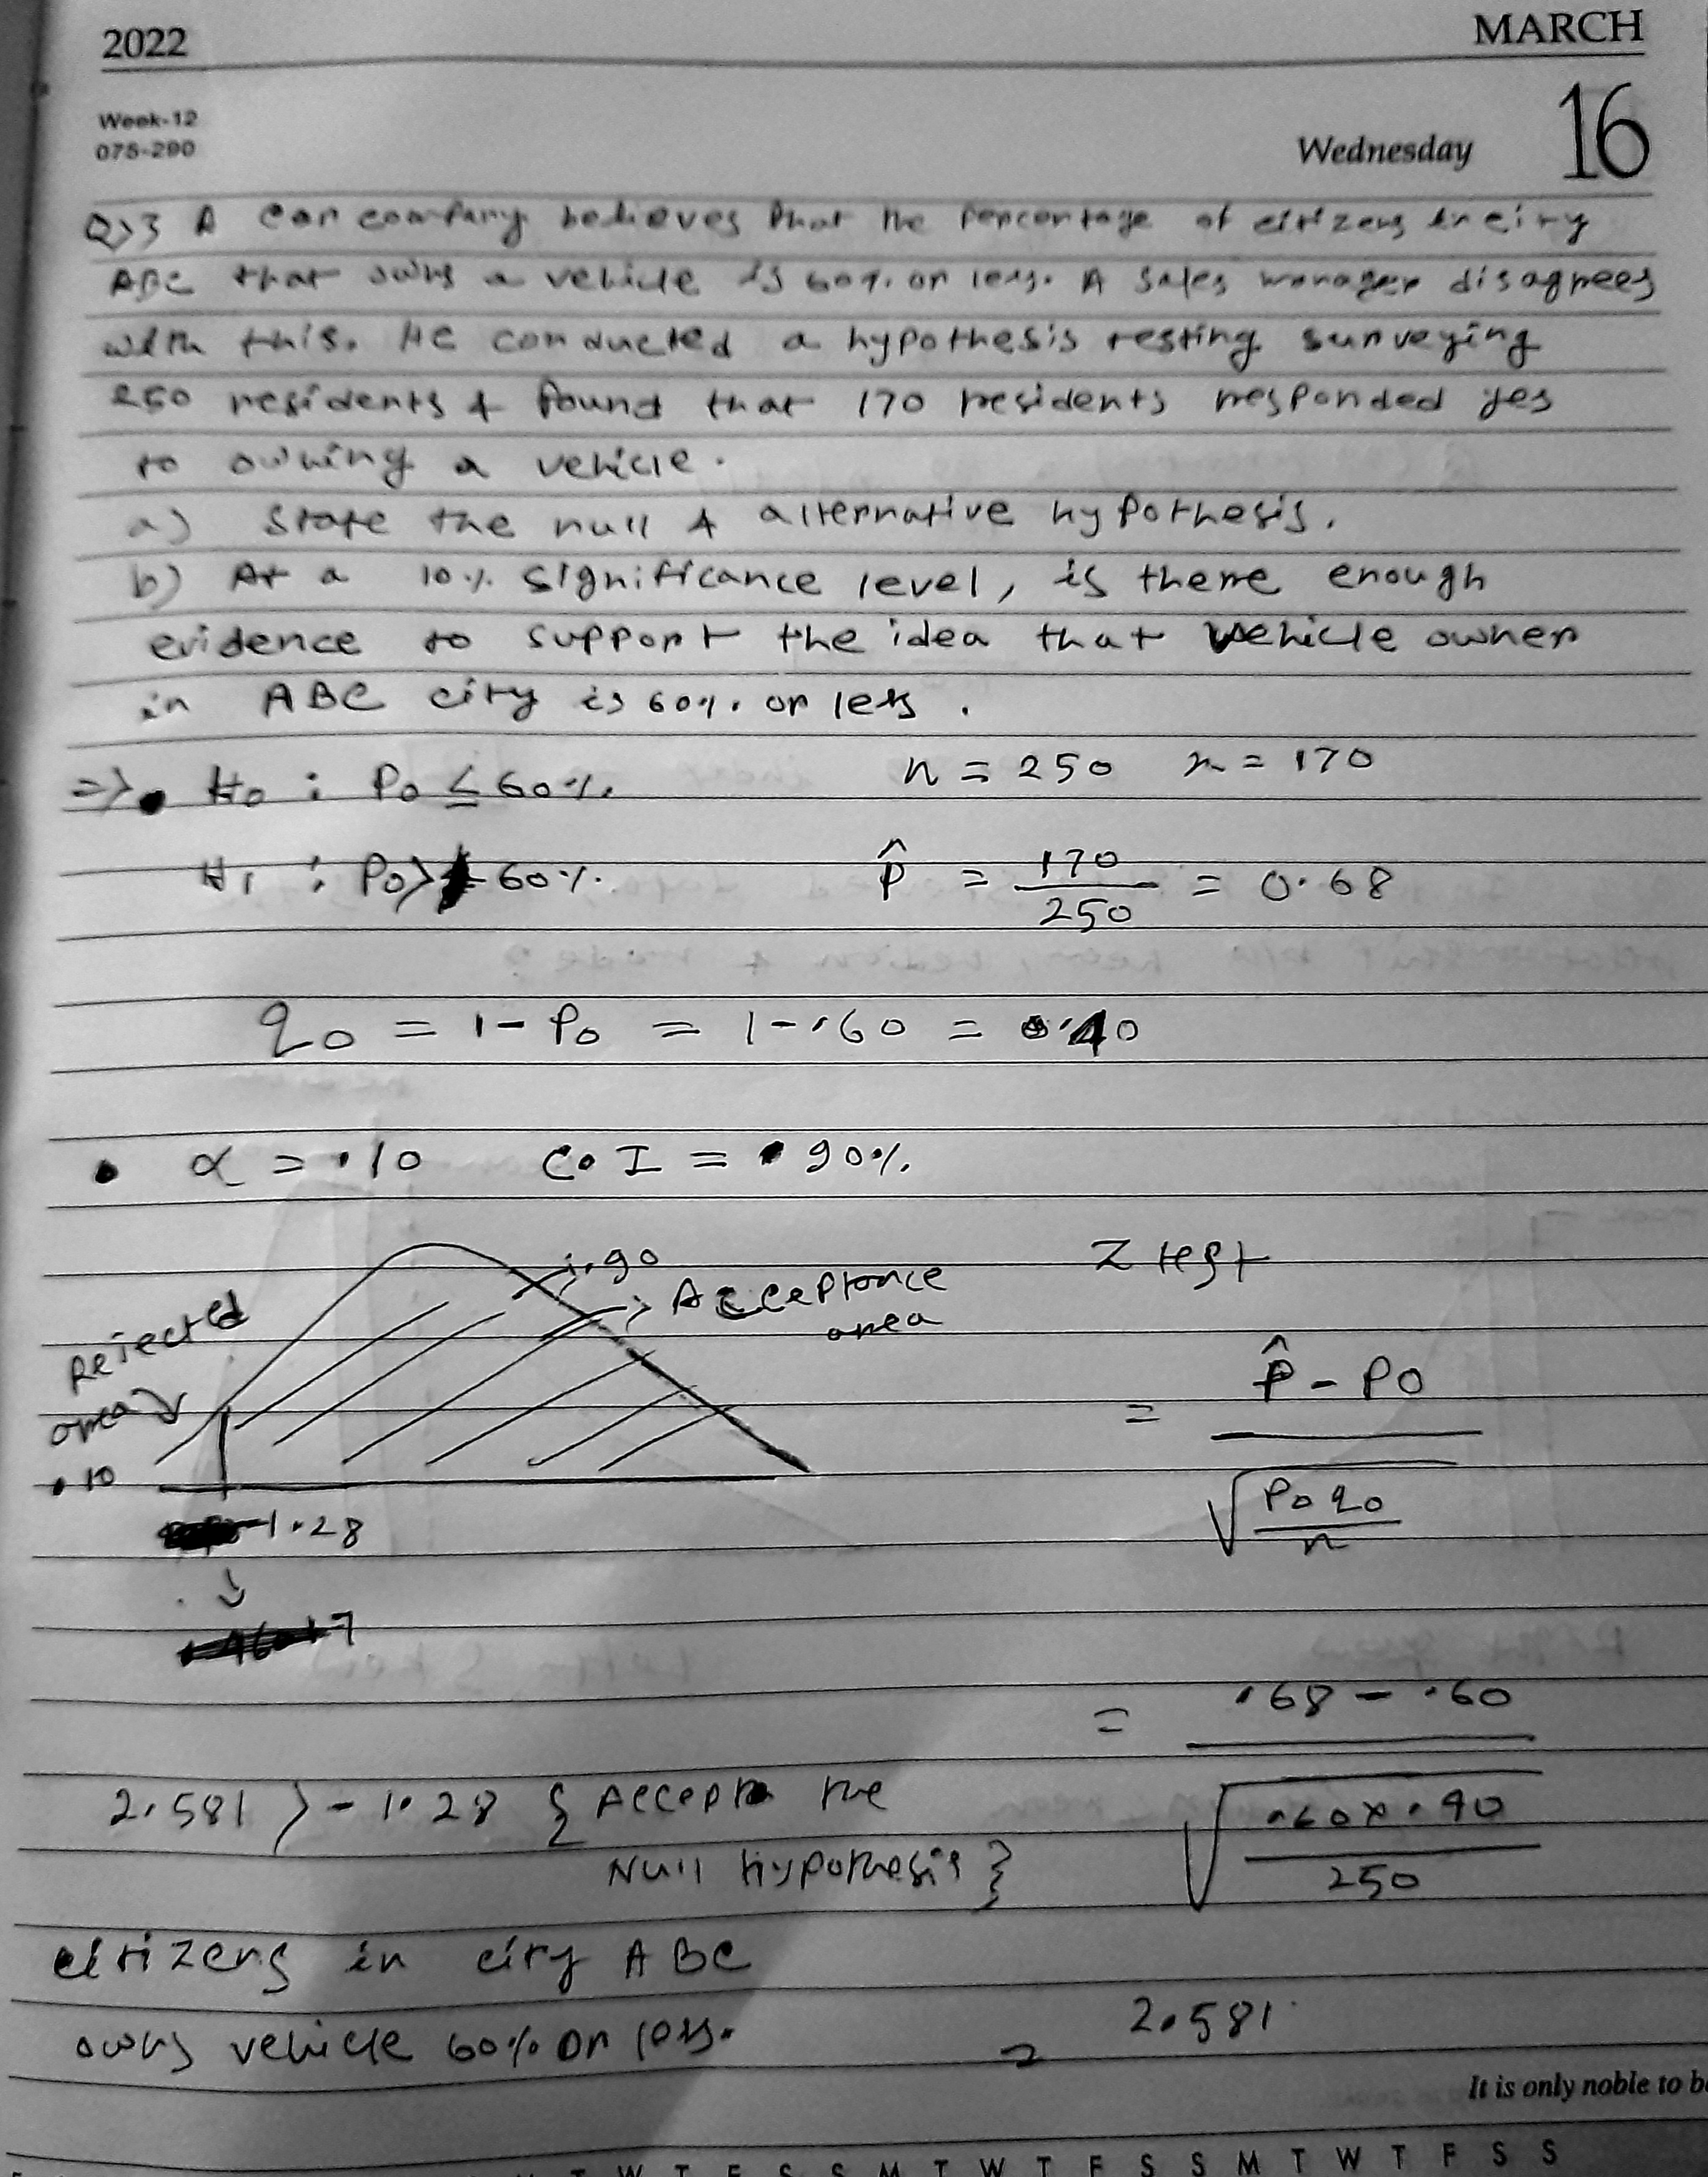 2022
MARCH
Week-12
075-290
Wednesday
16
Q>3 A car company believes that the percentage of citizens in city
ABC that owns a vehicle is 60% or less. A sales manager disagrees
with this. He conducted a hypothesis testing surveying
250 residents & found that 170 residents responded yes
to owning a vehicle.
a) State the null & alternative hypothesis.
b) At a 10% significance level, is there enough
evidence to support the idea that vehicle owner
in ABC city is 60% or less.
=> H0 : P0 ≤ 60% n = 250 x = 170
H1 : P0 > 60% p̂ = 170/250 = 0.68
q0 = 1 - P0 = 1 - .60 = 0.40
• α = .10 C.I = 90%
.90
Z test
Acceptance
area
Rejected
area
.10
= (p̂ - P0) / √(P0 q0 / n)
-1.28
= (.68 - .60) / √(.60 x .40 / 250)
2.581 > -1.28 { Accept the
Null Hypothesis }
citizens in city ABC
owns vehicle 60% or less.
= 2.581
It is only noble to b
T W T F S S M T W T F S S M T W T F S S